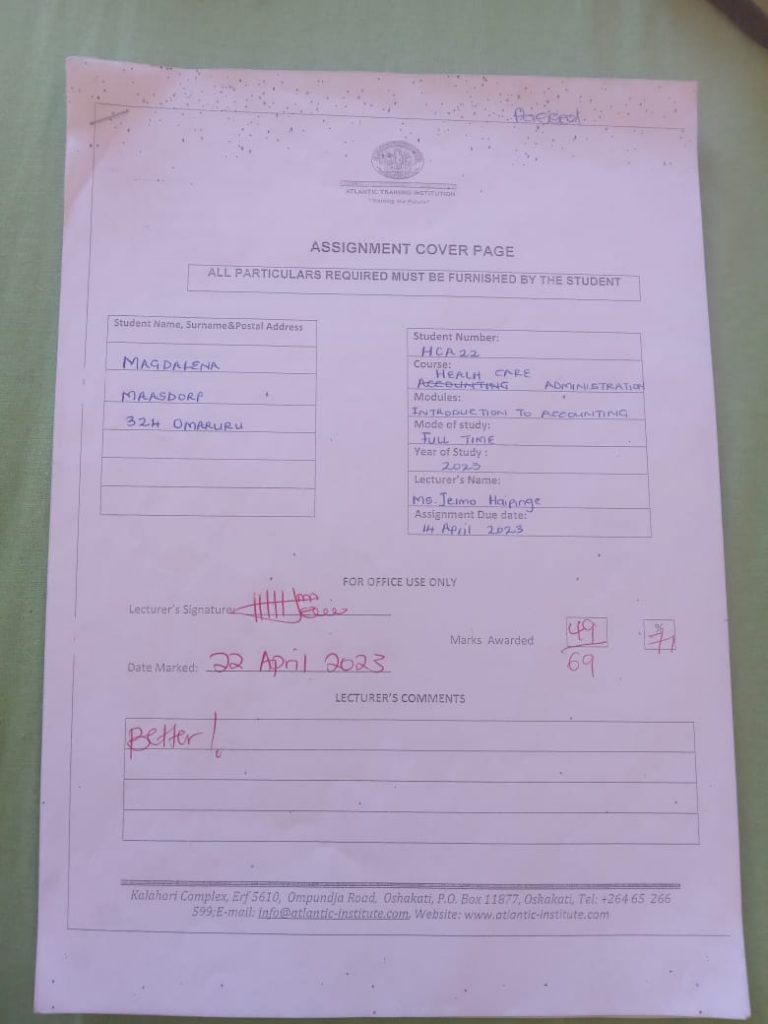 ATLANTIC TRAINING INSTITUTION
"Training the Future"
ASSIGNMENT COVER PAGE
ALL PARTICULARS REQUIRED MUST BE FURNISHED BY THE STUDENT
Student Name, Surname&Postal Address
MAGDALENA
MAASDORP
324 OMARURU
Student Number:
HCA22
Course:
HEALH CARE
ACCOUNTING ADMINISTRATION
Modules:
INTRODUCTION TO ACCOUNTING
Mode of study:
FULL TIME
Year of Study :
2023
Lecturer's Name:
Ms. Jeimo Haipinge
Assignment Due date:
14 April 2023
FOR OFFICE USE ONLY
Lecturer's Signature
Marks Awarded 49 %
69 71
Date Marked: 22 April 2023
LECTURER'S COMMENTS
Better!
Kalahari Complex, Erf 5610, Ompundja Road, Oshakati, P.O. Box 11877, Oshakati, Tel: +264 65 266
599;E-mail: info@atlantic-institute.com, Website: www.atlantic-institute.com